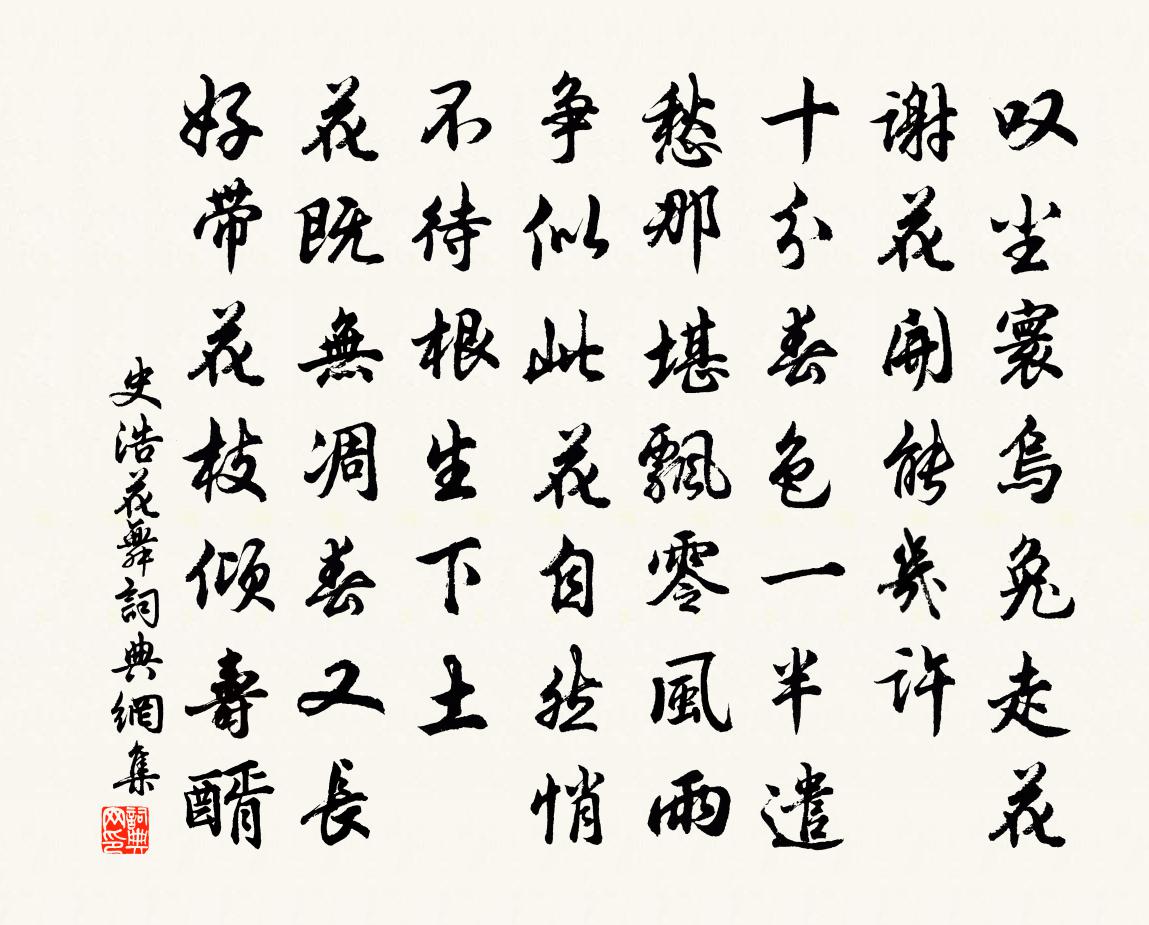 叹尘寰乌兔走花
谢花開能幾许
十分春色一半遣
愁那堪飘零風雨
争似此花自然悄
不待根生下土
花既無凋春又長
好带花枝倾壽醑
史浩花舞詞典網集
詞典网印